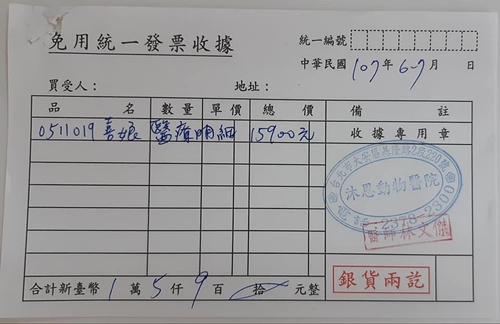 免用統一發票收據
統一編號
中華民國 107 年 6-7 月 日
買受人： 地址：
品名 數量 單價 總價 備註
0511019 喜娘 醫療明細 15900元 收據專用章
台北市大安區基隆路2段220號
沐恩動物醫院
電話:2378-2300
醫師林文傑
銀貨兩訖
合計新臺幣 1 萬 5 仟 9 百 拾 元整